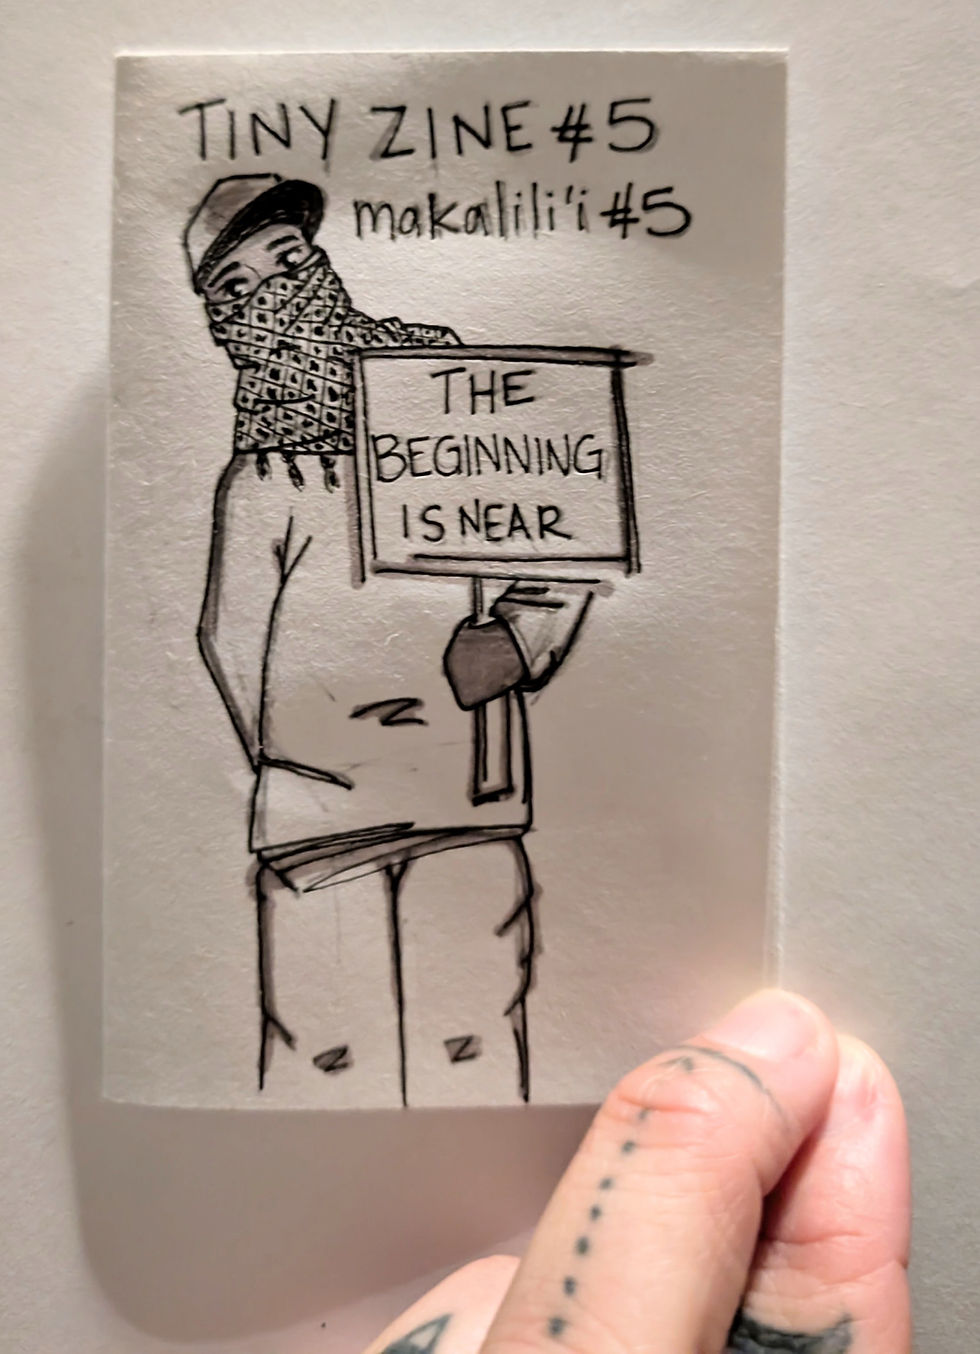 TINY ZINE #5
makalili'i #5
THE
BEGINNING
IS NEAR